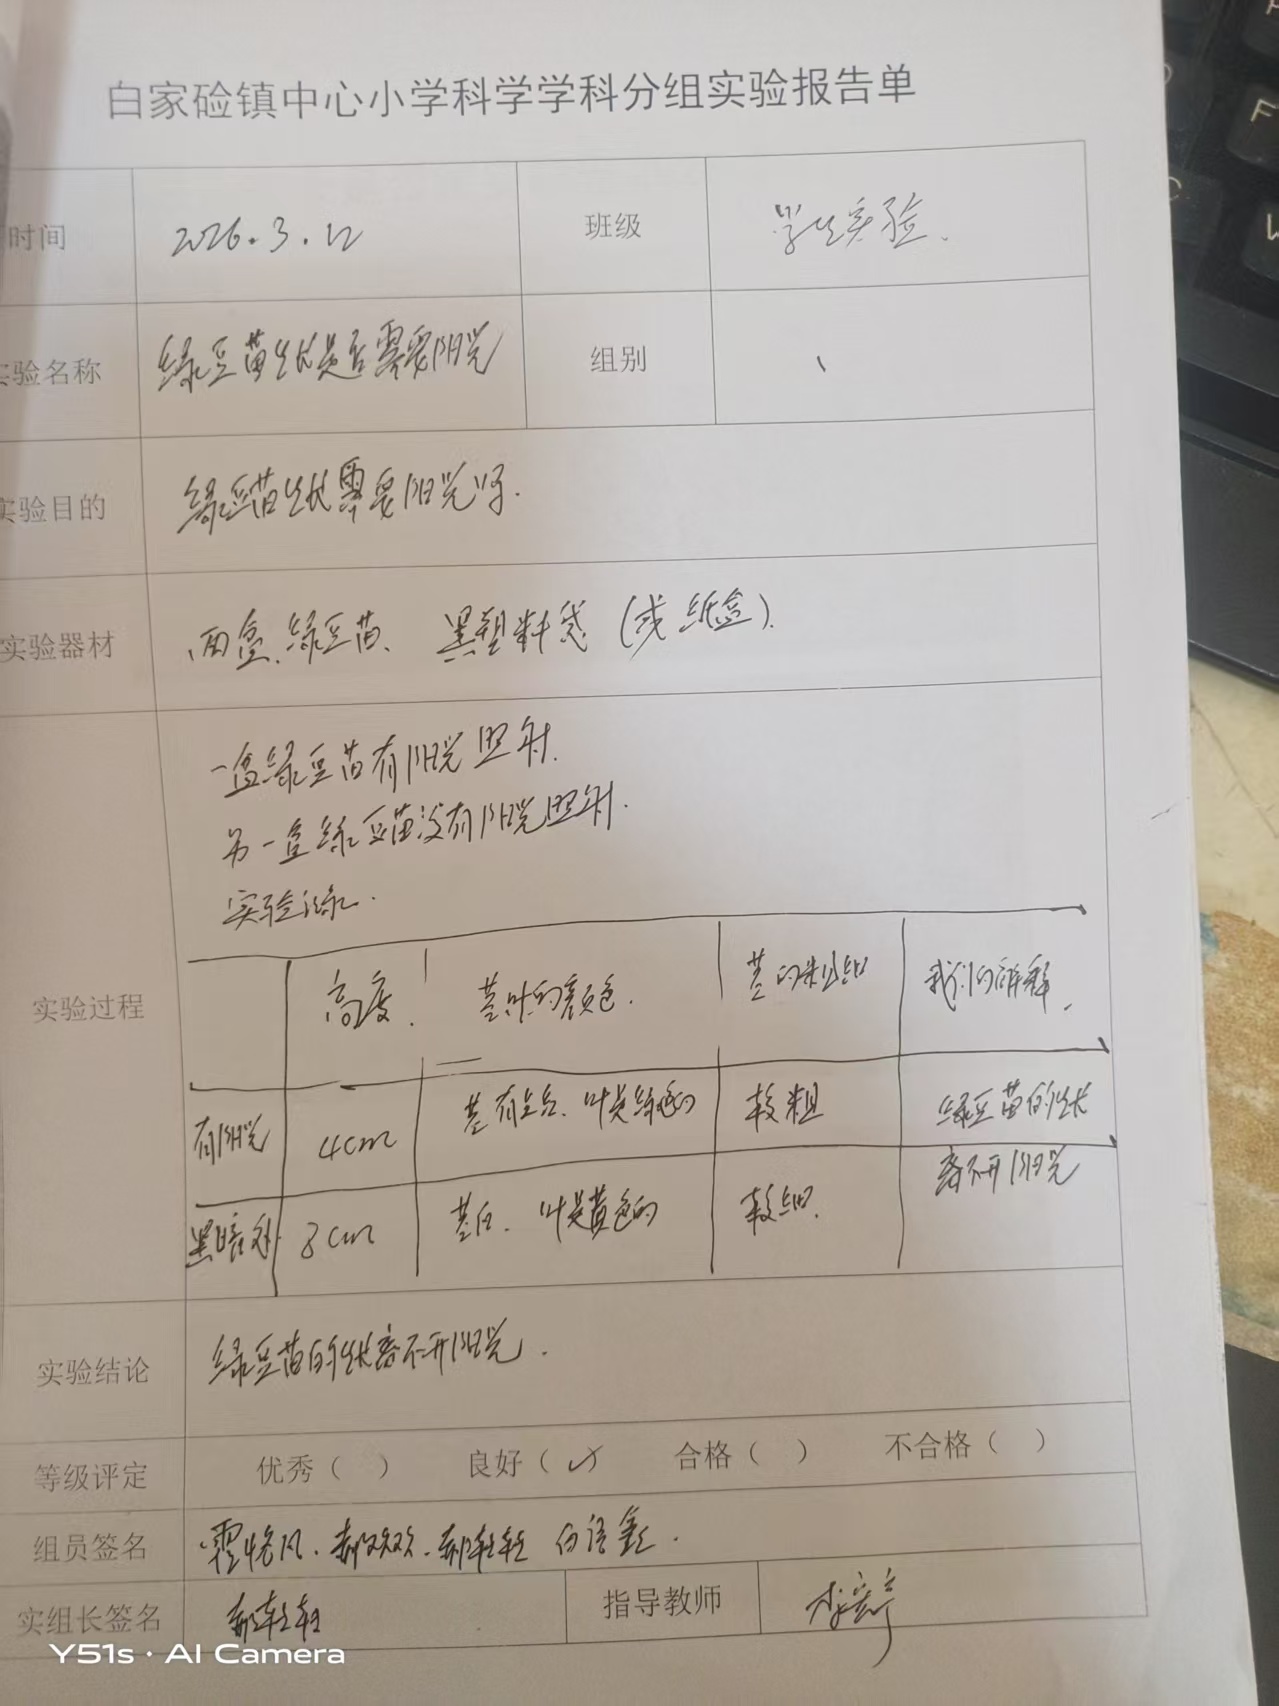 白家硷镇中心小学科学学科分组实验报告单
时间 2026.3.12 班级 学生实验.
实验名称 绿豆苗生长是否需要阳光 组别
实验目的 绿豆苗生长需要阳光吗.
实验器材 两盒绿豆苗、黑塑料袋(或纸盒).
一盒绿豆苗有阳光照射.
另一盒绿豆苗没有阳光照射.
实验记录.
实验过程
高度. 茎叶的颜色. 茎的粗细 我们的解释.
有阳光 4cm 叶是绿色的 较粗 绿豆苗的生长
离不开阳光
黑暗处 8cm 茎白、叶是黄色的 较细.
实验结论 绿豆苗的生长离不开阳光.
等级评定 优秀( ) 良好(✓) 合格( ) 不合格( )
组员签名 白语
实组长签名 指导教师
Y51s · AI Camera